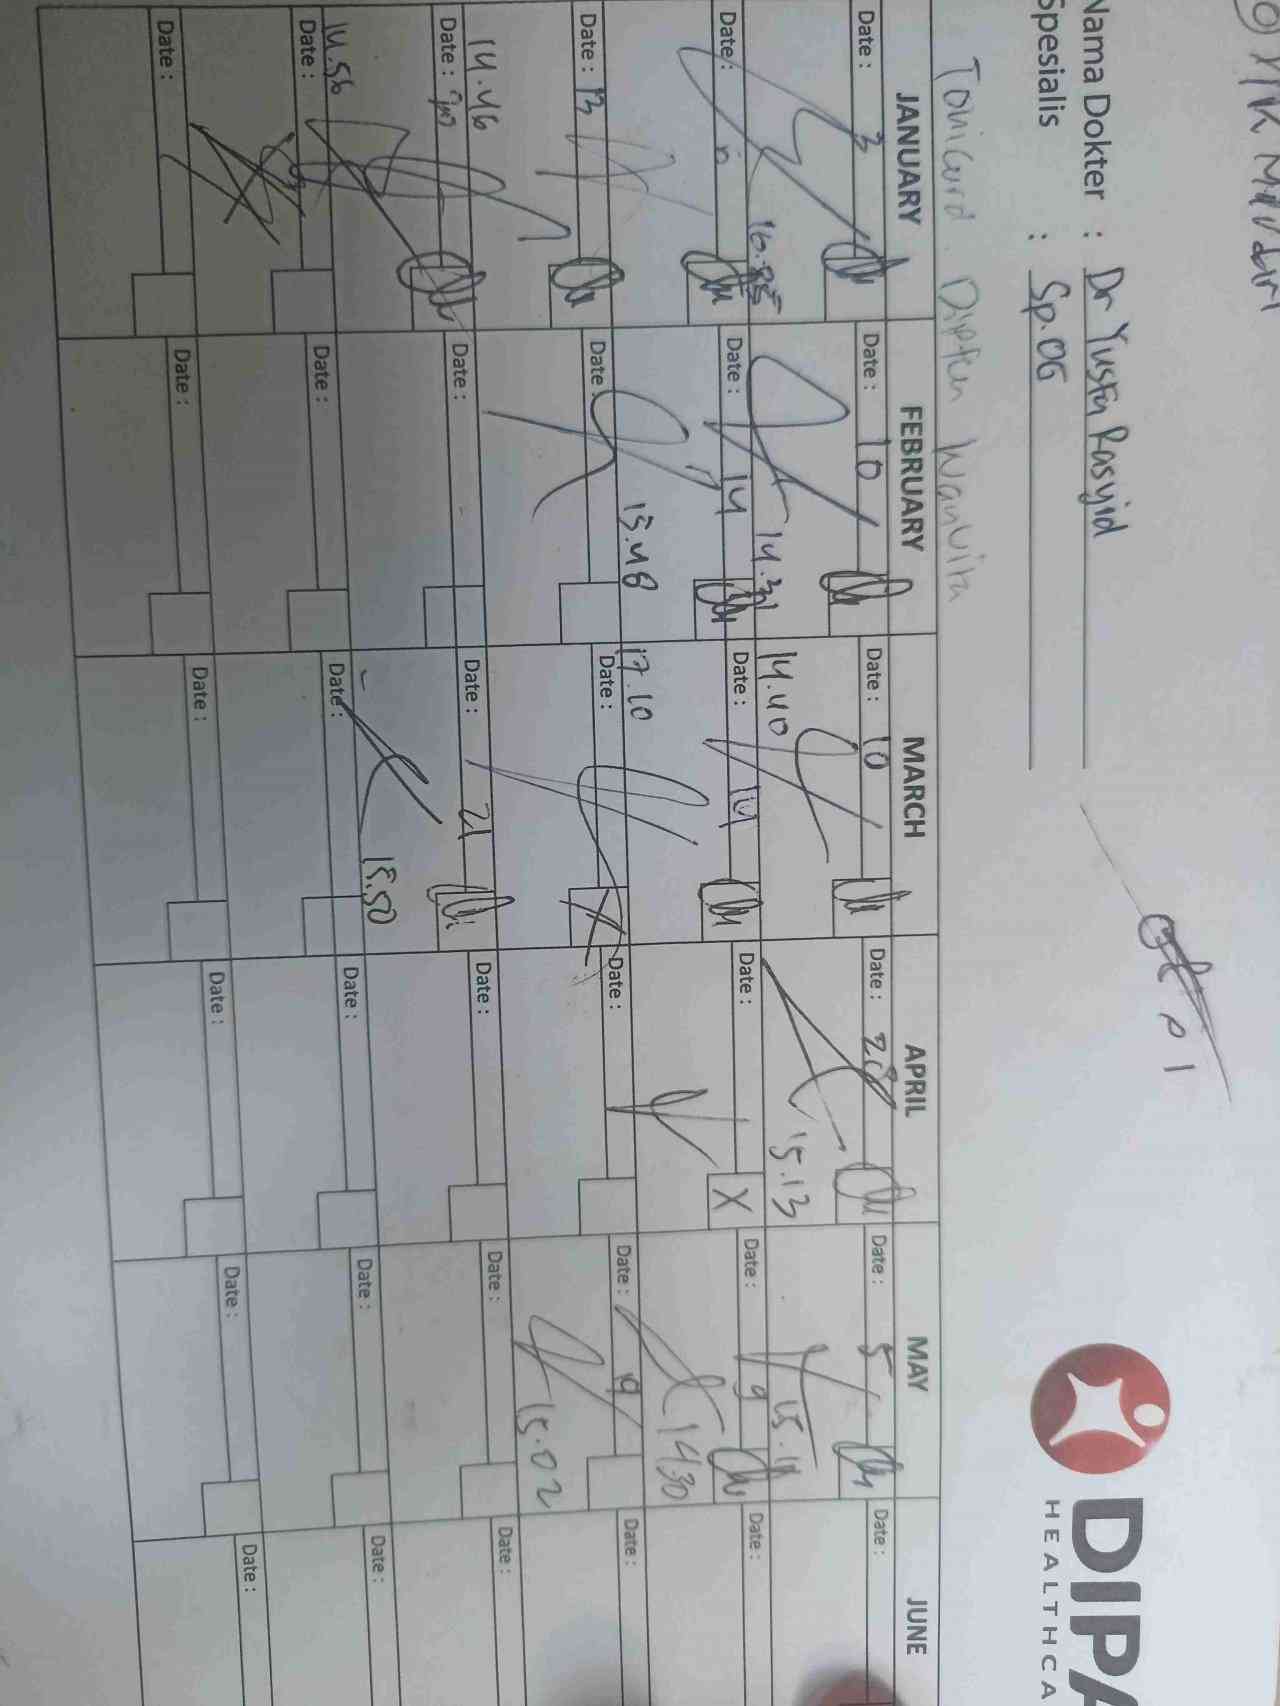 Mandiri
Nama Dokter : Dr Yusfa Rasyid
Spesialis : Sp.OG
DIPA
HEALTHCA
JANUARY FEBRUARY MARCH APRIL MAY JUNE
Date : 3 Date : 10 Date : 10 Date : 28 Date : 5 Date :
14.31 14.40 15.13
Date : Date : 14 Date : 14 Date : Date : 9 Date :
15.48 17.10 X 14.30
Date : 13 Date : Date : Date : Date : 19 Date :
14.46 15.02
Date : Date : Date : 21 Date : Date : Date :
14.56 15.50
Date : Date : Date : Date : Date : Date :
Date : Date : Date : Date : Date : Date :